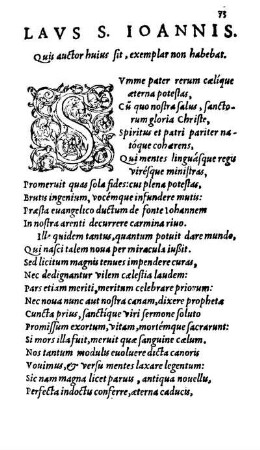 73
LAVS S. IOANNIS.
Quis auctor huius sit, exemplar non habebat.
SVmme pater rerum cælique
æterna potestas,
Cũ quo nostra salus, sancto-
rum gloria Christe,
Spiritus et patri pariter na-
tóque coharens,
Qui mentes linguásque regis
virésque ministras,
Promeruit quas sola fides: cus plena potestas,
Brutis ingenium, vocémque infundere mutis:
Præsta euangelico ductum de fonte Iohannem
In nostra arenti decurrere carmina riuo.
Ille quidem tantus, quantum potuit dare mundo,
Qui nasci talem noua per miracula iußit.
Sed licitum magnis tenues impendere curas,
Nec dedignantur vilem cælestia laudem:
Pars etiam meriti, meritum celebrare priorum:
Nec noua nunc aut nostra canam, dixere prophetæ
Cuncta prius, sanctique viri sermone soluto
Promissum exortum, vitam, mortémque sacrarunt:
Si mors illa fuit, meruit quæ sanguine cælum.
Nos tantum modulis euoluere dicta canoris
Vouimus, & versu mentes laxare legentum:
Sic nam magna licet paruis, antiqua nouellis,
Perfecta indoctis conferre, æterna caducis,